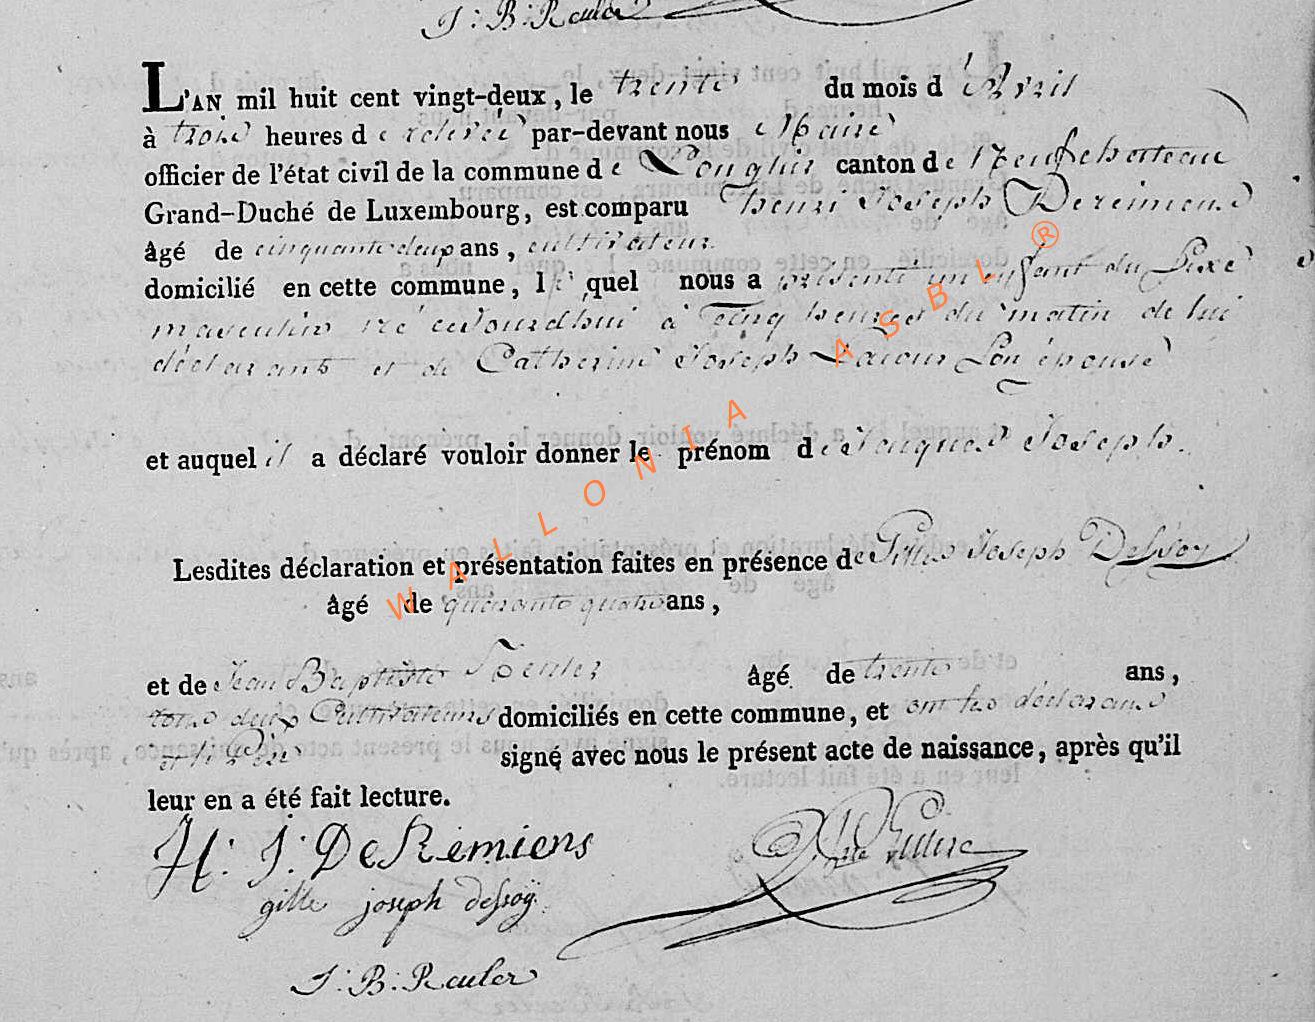 J: B: Rculer
L'AN mil huit cent vingt-deux, le trente du mois d'Avril
à trois heures de relevée par-devant nous Maire
officier de l'état civil de la commune de Longlier canton de Neufchateau
Grand-Duché de Luxembourg, est comparu henri Joseph Deremiens
âgé de cinquante deux ans, cultivateur
domicilié en cette commune, lequel nous a présenté un enfant du Sexe
masculin né cejourdhui à cinq heures du matin de lui
déclarant et de Catherine Joseph Son épouse
et auquel il a déclaré vouloir donner le prénom de Jacques Joseph.
Lesdites déclaration et présentation faites en présence de Joseph Dessoy
âgé de quarante quatre ans,
et de Jean Baptiste âgé de trente ans,
tous deux Cultivateurs domiciliés en cette commune, et ont les déclarans
signé avec nous le présent acte de naissance, après qu'il
leur en a été fait lecture.
H: J: DeRemiens
gille joseph dessoÿ
J: B: Rculer
WALLONIA ASBL ®